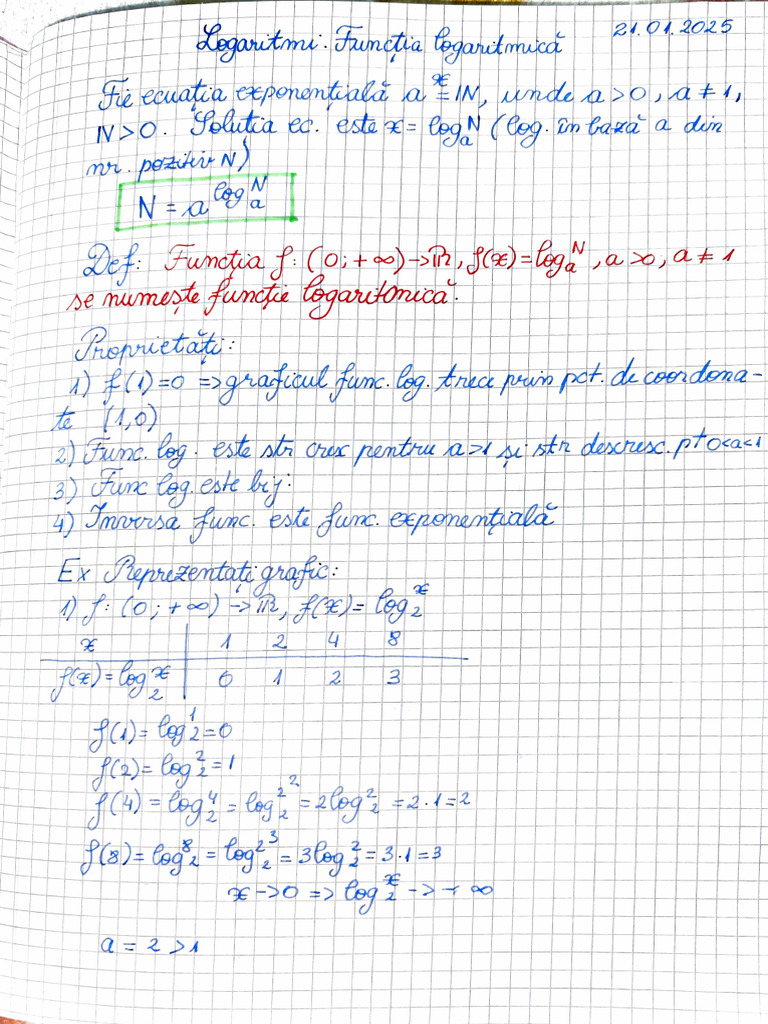 Logaritmi. Funcția logaritmică 21.01.2025
Fie ecuația exponențială a^x = N, unde a > 0, a ≠ 1,
N > 0. Soluția ec. este x = log_a^N (log. în bază a din
nr. pozitiv N)
N = a^(log_a^N)
Def: Funcția f: (0; +∞) -> ℝ, f(x) = log_a^N, a > 0, a ≠ 1
se numește funcție logaritmică.
Proprietăți:
1) f(1) = 0 => graficul func. log. trece prin pct. de coordona-
te (1,0)
2) Func. log. este str cresc pentru a>1 și str descresc. pt 0<a<1
3) Func log. este bij.
4) Inversa func. este func. exponențială
Ex Reprezentați grafic:
1) f: (0; +∞) -> ℝ, f(x) = log_2^x
x 1 2 4 8
f(x) = log_2^x 0 1 2 3
f(1) = log_2^1 = 0
f(2) = log_2^2 = 1
f(4) = log_2^4 = log_2^(2^2) = 2log_2^2 = 2·1 = 2
f(8) = log_2^8 = log_2^(2^3) = 3log_2^2 = 3·1 = 3
x -> 0 => log_2^x -> -∞
a = 2 > 1